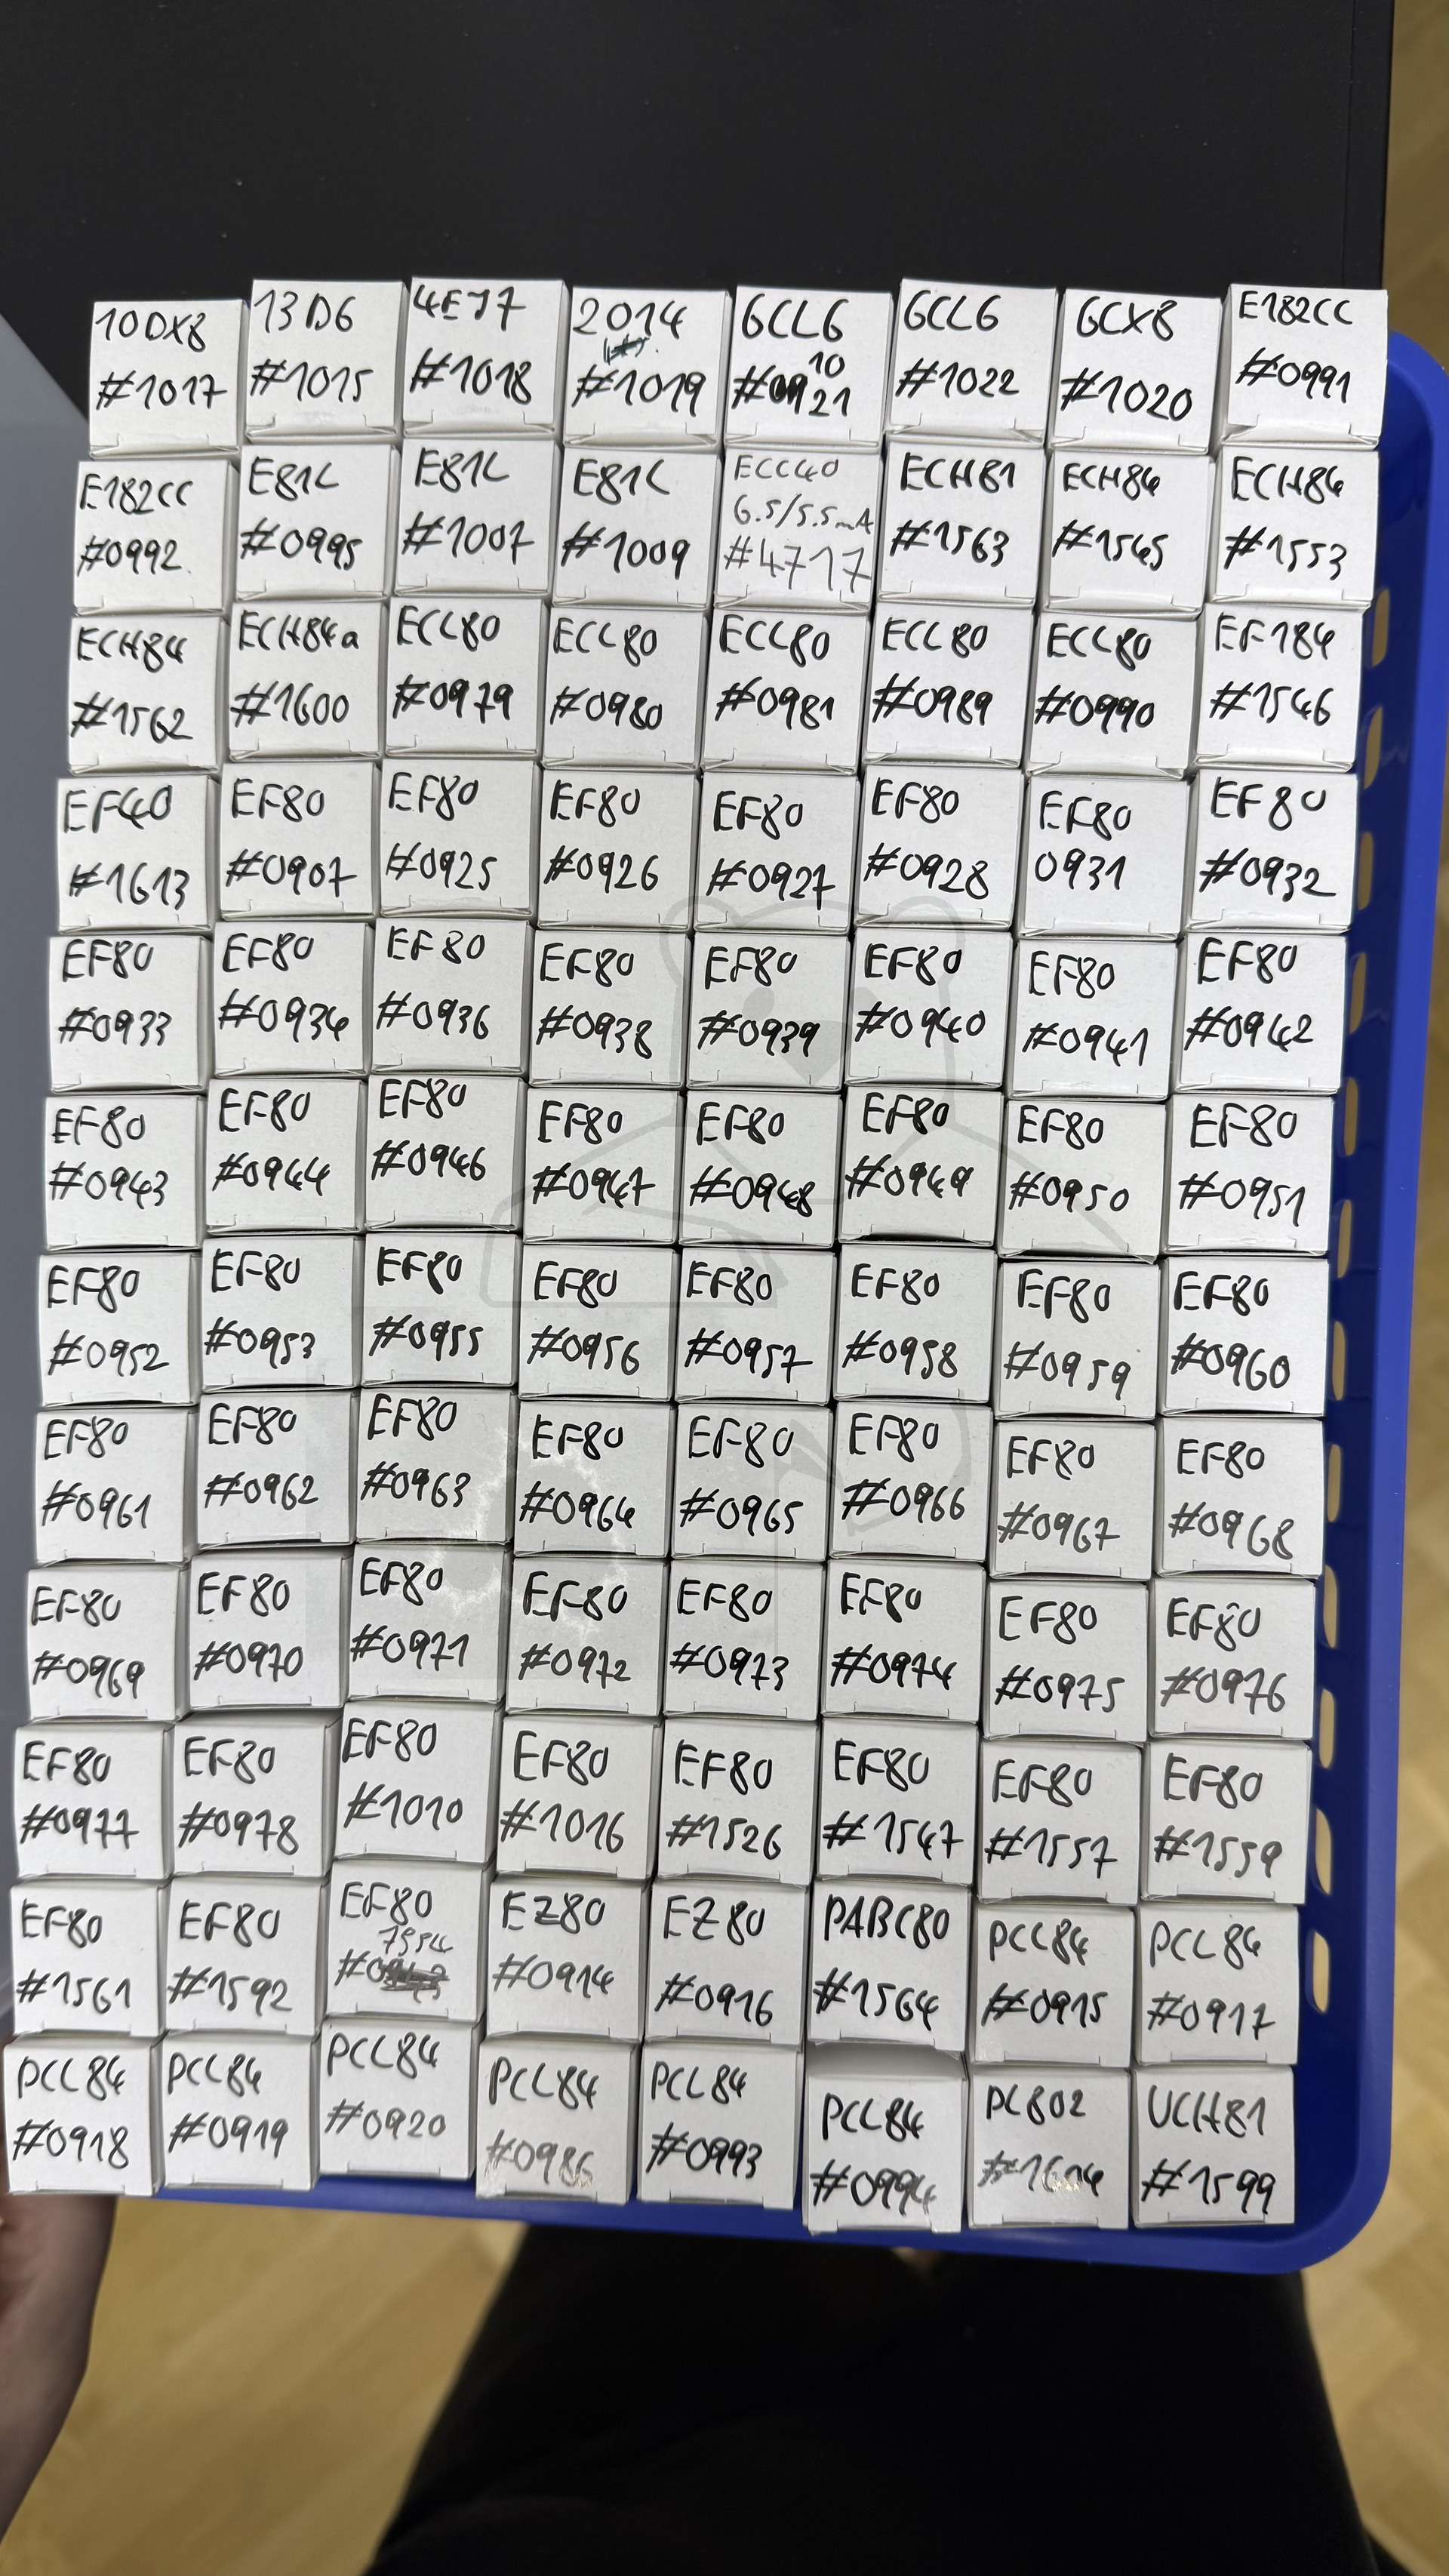 10DX8
#1017
13D6
#1015
4EJ7
#1018
2014
#1019
6CL6
10
#21
6CL6
#1022
6CX8
#1020
E182CC
#0991
E182CC
#0992
E81L
#0995
E81L
#1007
E81L
#1009
ECC40
6.5/5.5mA
#4717
ECH81
#1563
ECH84
#1545
ECH84
#1553
ECH84
#1562
ECH84a
#1600
ECL80
#0979
ECL80
#0980
ECL80
#0981
ECL80
#0989
ECL80
#0990
EF184
#1546
EF40
#1613
EF80
#0907
EF80
#0925
EF80
#0926
EF80
#0927
EF80
#0928
EF80
0931
EF80
#0932
EF80
#0933
EF80
#0934
EF80
#0936
EF80
#0938
EF80
#0939
EF80
#0940
EF80
#0941
EF80
#0942
EF80
#0943
EF80
#0944
EF80
#0946
EF80
#0947
EF80
#0948
EF80
#0949
EF80
#0950
EF80
#0951
EF80
#0952
EF80
#0953
EF80
#0955
EF80
#0956
EF80
#0957
EF80
#0958
EF80
#0959
EF80
#0960
EF80
#0961
EF80
#0962
EF80
#0963
EF80
#0964
EF80
#0965
EF80
#0966
EF80
#0967
EF80
#0968
EF80
#0969
EF80
#0970
EF80
#0971
EF80
#0972
EF80
#0973
EF80
#0974
EF80
#0975
EF80
#0976
EF80
#0977
EF80
#0978
EF80
#1010
EF80
#1016
EF80
#1526
EF80
#1547
EF80
#1557
EF80
#1559
EF80
#1561
EF80
#1592
EF80
EZ80
#0914
EZ80
#0916
PABC80
#1564
PCL84
#0915
PCL84
#0917
PCL84
#0918
PCL84
#0919
PCL84
#0920
PCL84
#0986
PCL84
#0993
PCL84
#0994
PL802
UCH81
#1599